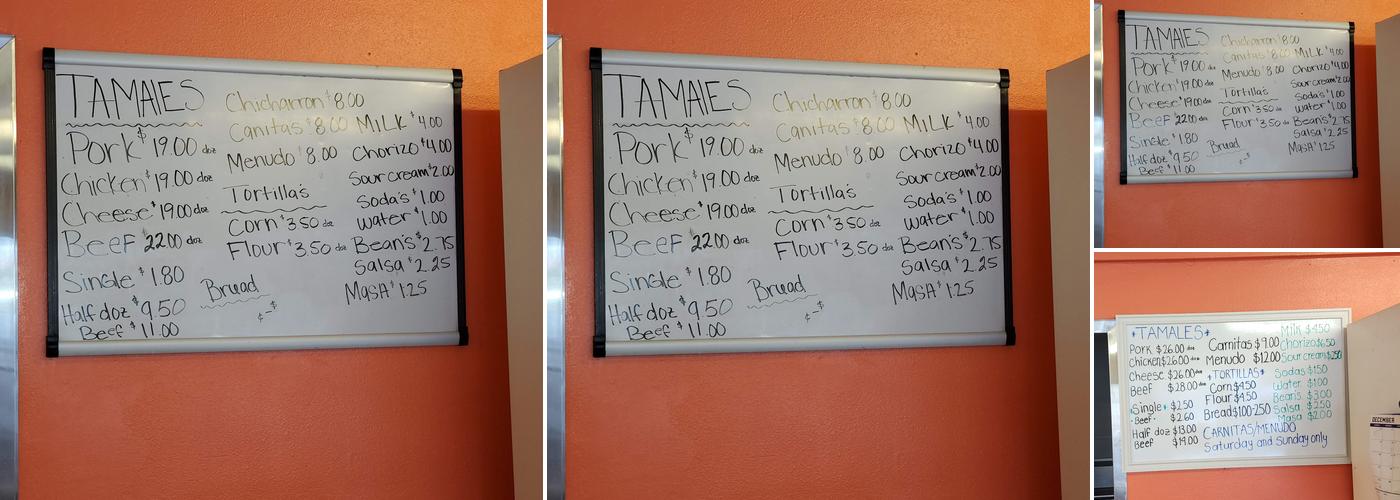 TAMAlES
Pork $19.00 doz
Chicken $19.00 doz
Cheese $19.00 doz
Beef 22.00 doz
Single $1.80
Half doz $9.50
Beef $11.00
Chicharron $8.00
Canitas $8.00
Menudo $8.00
Tortilla's
Corn $3.50 doz
Flour $3.50 doz
Bread
¢-$
Milk $4.00
Chorizo $4.00
Sour cream $2.00
Soda's $1.00
water $1.00
Bean's $2.75
Salsa $2.25
Masa $1.25
TAMAlES
Pork $19.00 doz
Chicken $19.00 doz
Cheese $19.00 doz
Beef 22.00 doz
Single $1.80
Half doz $9.50
Beef $11.00
Chicharron $8.00
Canitas $8.00
Menudo $8.00
Tortilla's
Corn $3.50 doz
Flour $3.50 doz
Bread
¢-$
Milk $4.00
Chorizo $4.00
Sour cream $2.00
Soda's $1.00
water $1.00
Bean's $2.75
Salsa $2.25
Masa $1.25
TAMAlES
Pork $19.00 doz
Chicken $19.00 doz
Cheese $19.00 doz
Beef 22.00 doz
Single $1.80
Half doz $9.50
Beef $11.00
Chicharron $8.00
Canitas $8.00
Menudo $8.00
Tortilla's
Corn $3.50 doz
Flour $3.50 doz
Bread
¢-$
Milk $4.00
Chorizo $4.00
Sour cream $2.00
Soda's $1.00
water $1.00
Bean's $2.75
Salsa $2.25
Masa $1.25
*TAMALES*
Pork $26.00 doz
Chicken $26.00 doz
Cheese $26.00 doz
Beef $28.00 doz
*Single* $2.50
-Beef- $2.60
Half doz $13.00
Beef $14.00
Carnitas $9.00
Menudo $12.00
*TORTILLAS*
Corn $4.50
Flour $4.50
Bread $1.00-2.50
CARNITAS/MENUDO
Saturday and Sunday only
Milk $4.50
Chorizo $6.50
Sour cream $2.50
Sodas $1.50
Water $1.00
Bean's $3.00
Salsa $2.50
Masa $2.00
DECEMBER